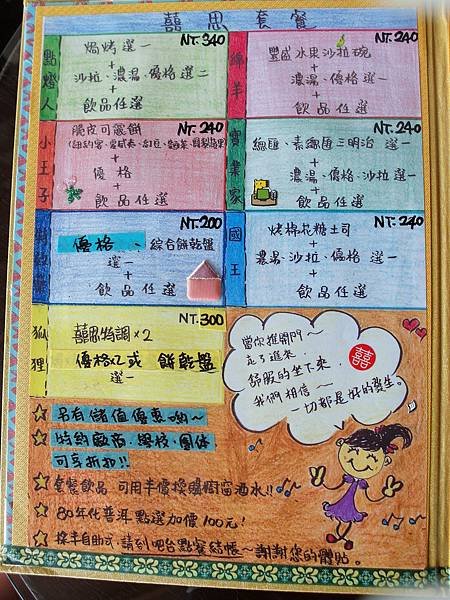 囍思套餐
點燈人
NT.340
焗烤 選一
+
沙拉、濃湯、優格 選二
+
飲品任選
綿羊
NT.240
豐盛水果沙拉碗
+
濃湯、優格 選一
+
飲品任選
小王子
NT.240
脆皮可麗餅
+
優格
+
飲品任選
實業家
NT.240
總匯、素總匯三明治 選一
+
濃湯、優格、沙拉選一
+
飲品任選
NT.200
優格、綜合餅乾盤
選一
+
飲品任選
國王
NT.240
烤棉花糖土司
+
濃湯、沙拉、優格 選一
+
飲品任選
狐狸
NT.300
囍思特調×2
+
優格×2或 餅乾盤
選一
當你推開門~
走了進來.
舒服的坐下來.
我們相信~
一切都是好的發生。
囍
另有儲值優惠喲~
特約廠商、學校、團體
可享折扣!!
套餐飲品 可用半價換購櫥窗酒水!!
80年代普洱 點選加價100元!
採半自助式 請到吧台點餐結帳~謝謝您的體貼。